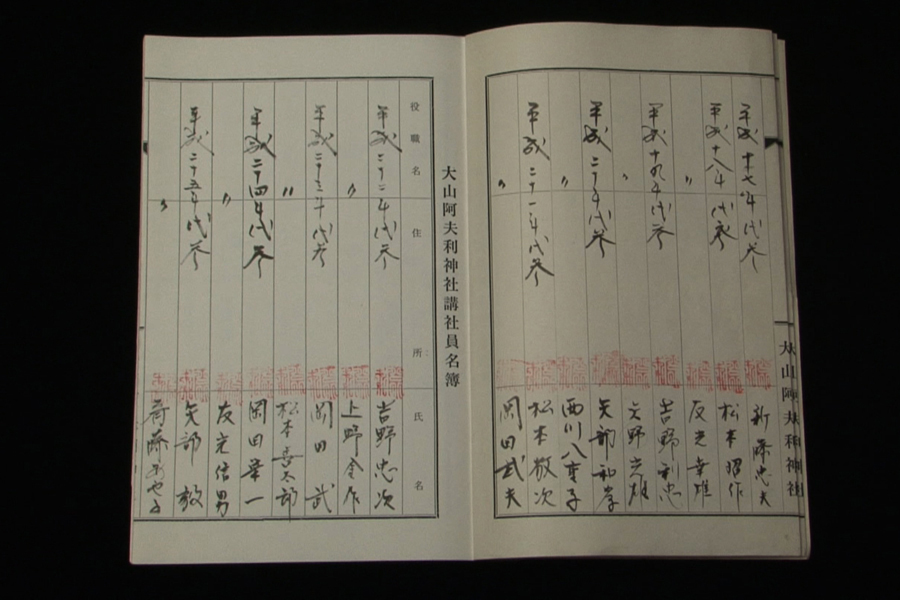 平成十七年代参 新藤忠夫
平成十八年代参 松本昭作
〃 友光幸雄
平成十九年代参 吉野利忠
〃 上野光雄
平成二十年代参 矢部和孝
〃 西川八重子
平成二十一年代参 松本敬次
〃 岡田武夫
大山阿夫利神社
大山阿夫利神社講社員名簿
役職名 住所 氏名
平成二十二年代参 吉野忠次
〃 上野金作
平成二十三年代参 岡田武
〃 松本喜太郎
平成二十四年代参 岡田幸一
〃 友光信男
平成二十五年代参 矢部敏
〃 斉藤